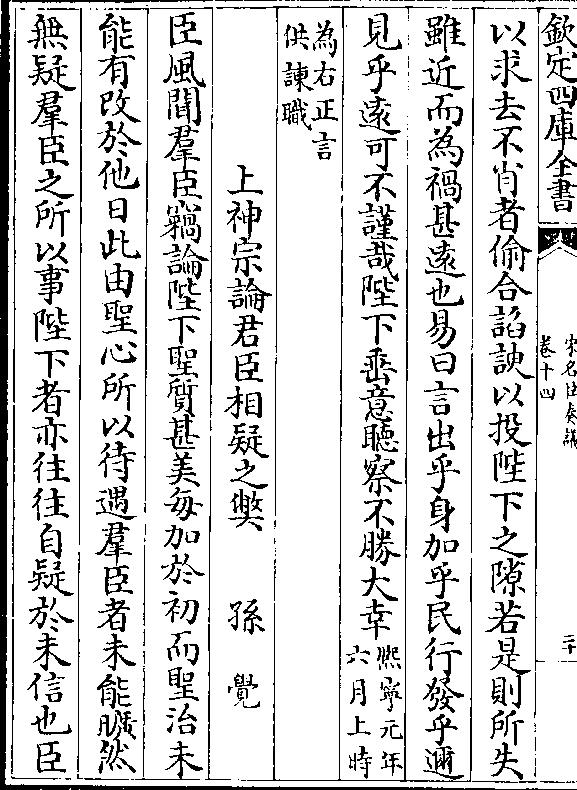 欽定四庫全書
宋名臣奏議
卷十四
二十
以求去不肖者偷合謟諛以投陛下之隙若是則所失
雖近而為禍甚遠也易曰言出乎身加乎民行發乎邇
見乎遠可不謹哉陛下垂意聽察不勝大幸熙寧元年
六月上時
為右正言
供諫職
上神宗論君臣相疑之弊　孫覺
臣風聞羣臣竊論陛下聖質甚美每加於初而聖治未
能有改於他日此由聖心所以待遇羣臣者未能曠然
無疑羣臣之所以事陛下者亦往往自疑於未信也臣